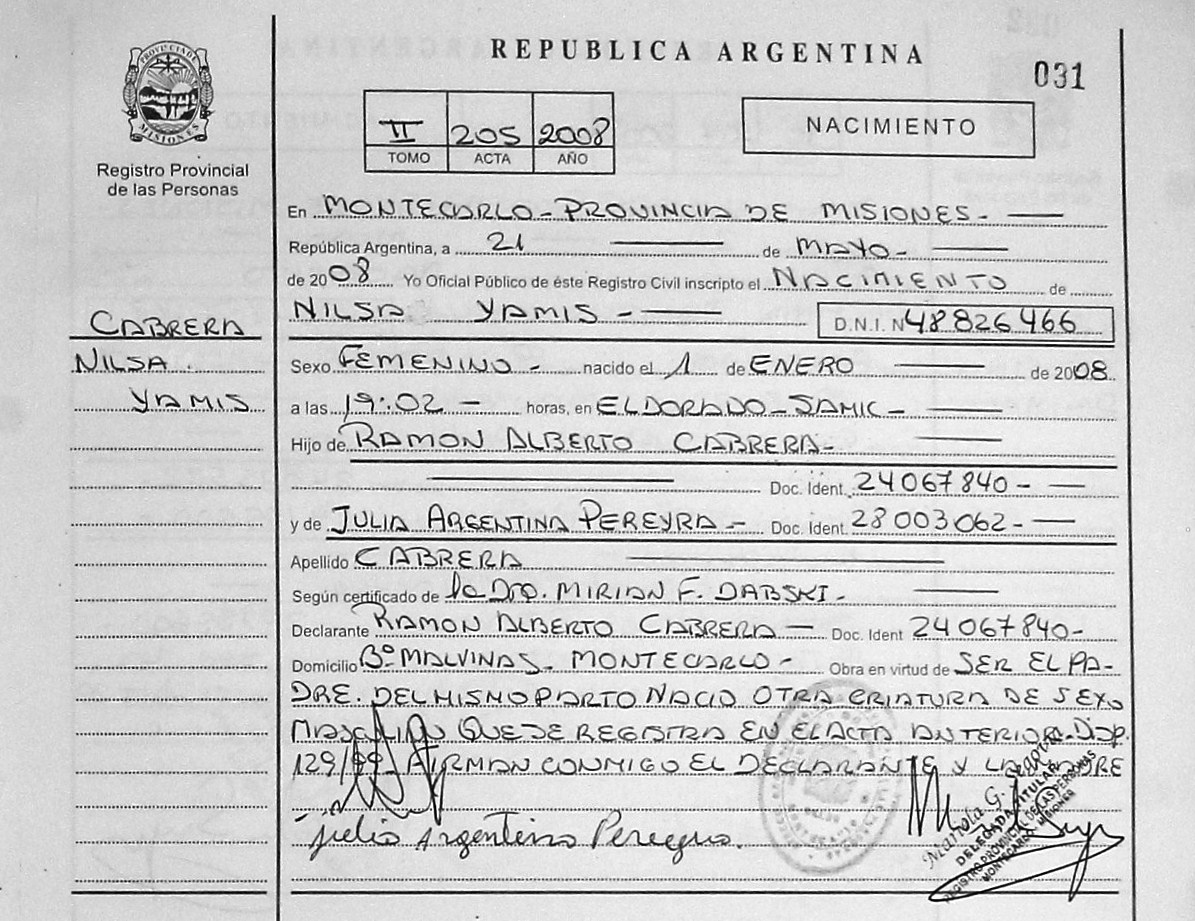 REPUBLICA ARGENTINA
031
PROVINCIA DE
MISIONES
Registro Provincial
de las Personas
II 205 2008
TOMO ACTA AÑO
NACIMIENTO
En MONTECARLO - PROVINCIA DE MISIONES -
República Argentina, a 21 de MAYO -
de 2008 Yo Oficial Público de éste Registro Civil inscripto el NACIMIENTO de
NILSA YAMIS - D.N.I. Nº 48826466
CABRERA
NILSA
YAMIS
Sexo FEMENINO - nacido el 1 de ENERO de 2008
a las 19:02 - horas, en ELDORADO - SAMIC -
Hijo de RAMON ALBERTO CABRERA -
Doc. Ident. 24067840 -
y de JULIA ARGENTINA PEREYRA - Doc. Ident. 28003062 -
Apellido CABRERA
Según certificado de la Dra. MIRIAN F. DABSKI -
Declarante RAMON ALBERTO CABRERA - Doc. Ident 24067840 -
Domicilio Bº MALVINAS - MONTECARLO - Obra en virtud de SER EL PA-
DRE. DEL MISMO PARTO NACIO OTRA CRIATURA DE SEXO
MASCULINO QUE SE REGISTRA EN EL ACTA ANTERIOR - Disp.
129/99 - FIRMAN CONMIGO EL DECLARANTE Y LA MADRE
Julia Argentina Pereyra.
DELEGADA TITULAR
REGISTRO PROVINCIAL DE LAS PERSONAS
MONTECARLO - MISIONES